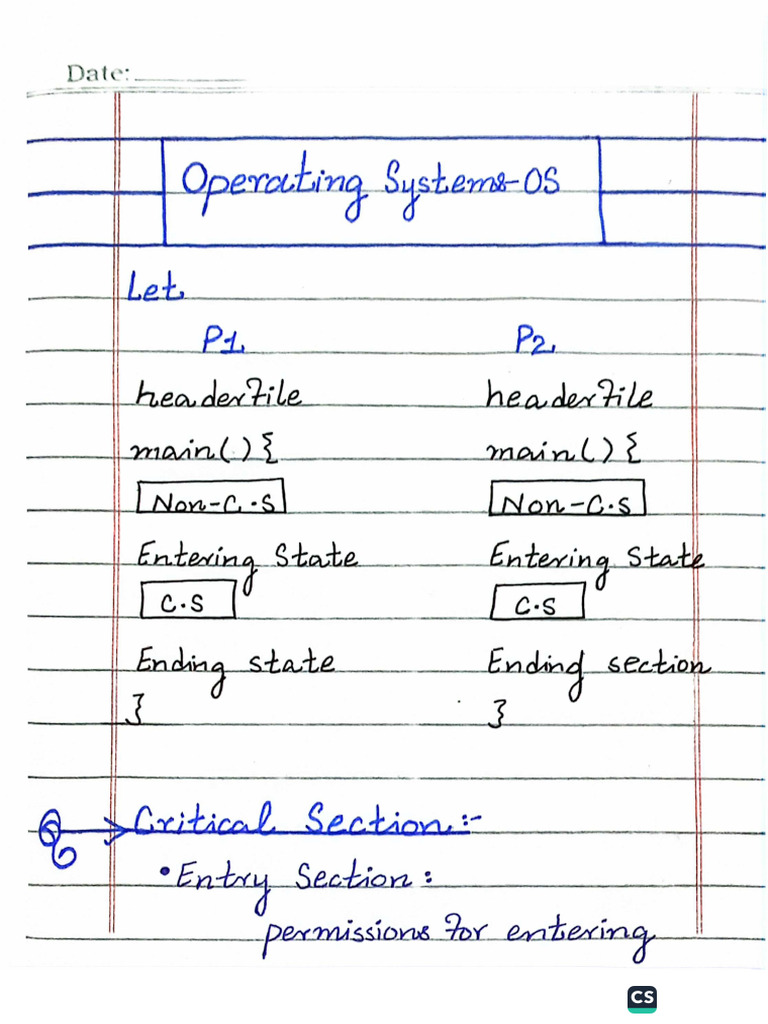 Date:
Operating Systems-OS
Let,
P1, P2,
headerfile headerfile
main(){ main(){
Non-C.S Non-C.S
Entering State Entering State
C.S C.S
Ending state Ending section
} }
Critical Section:-
• Entry Section:
permissions for entering
CS